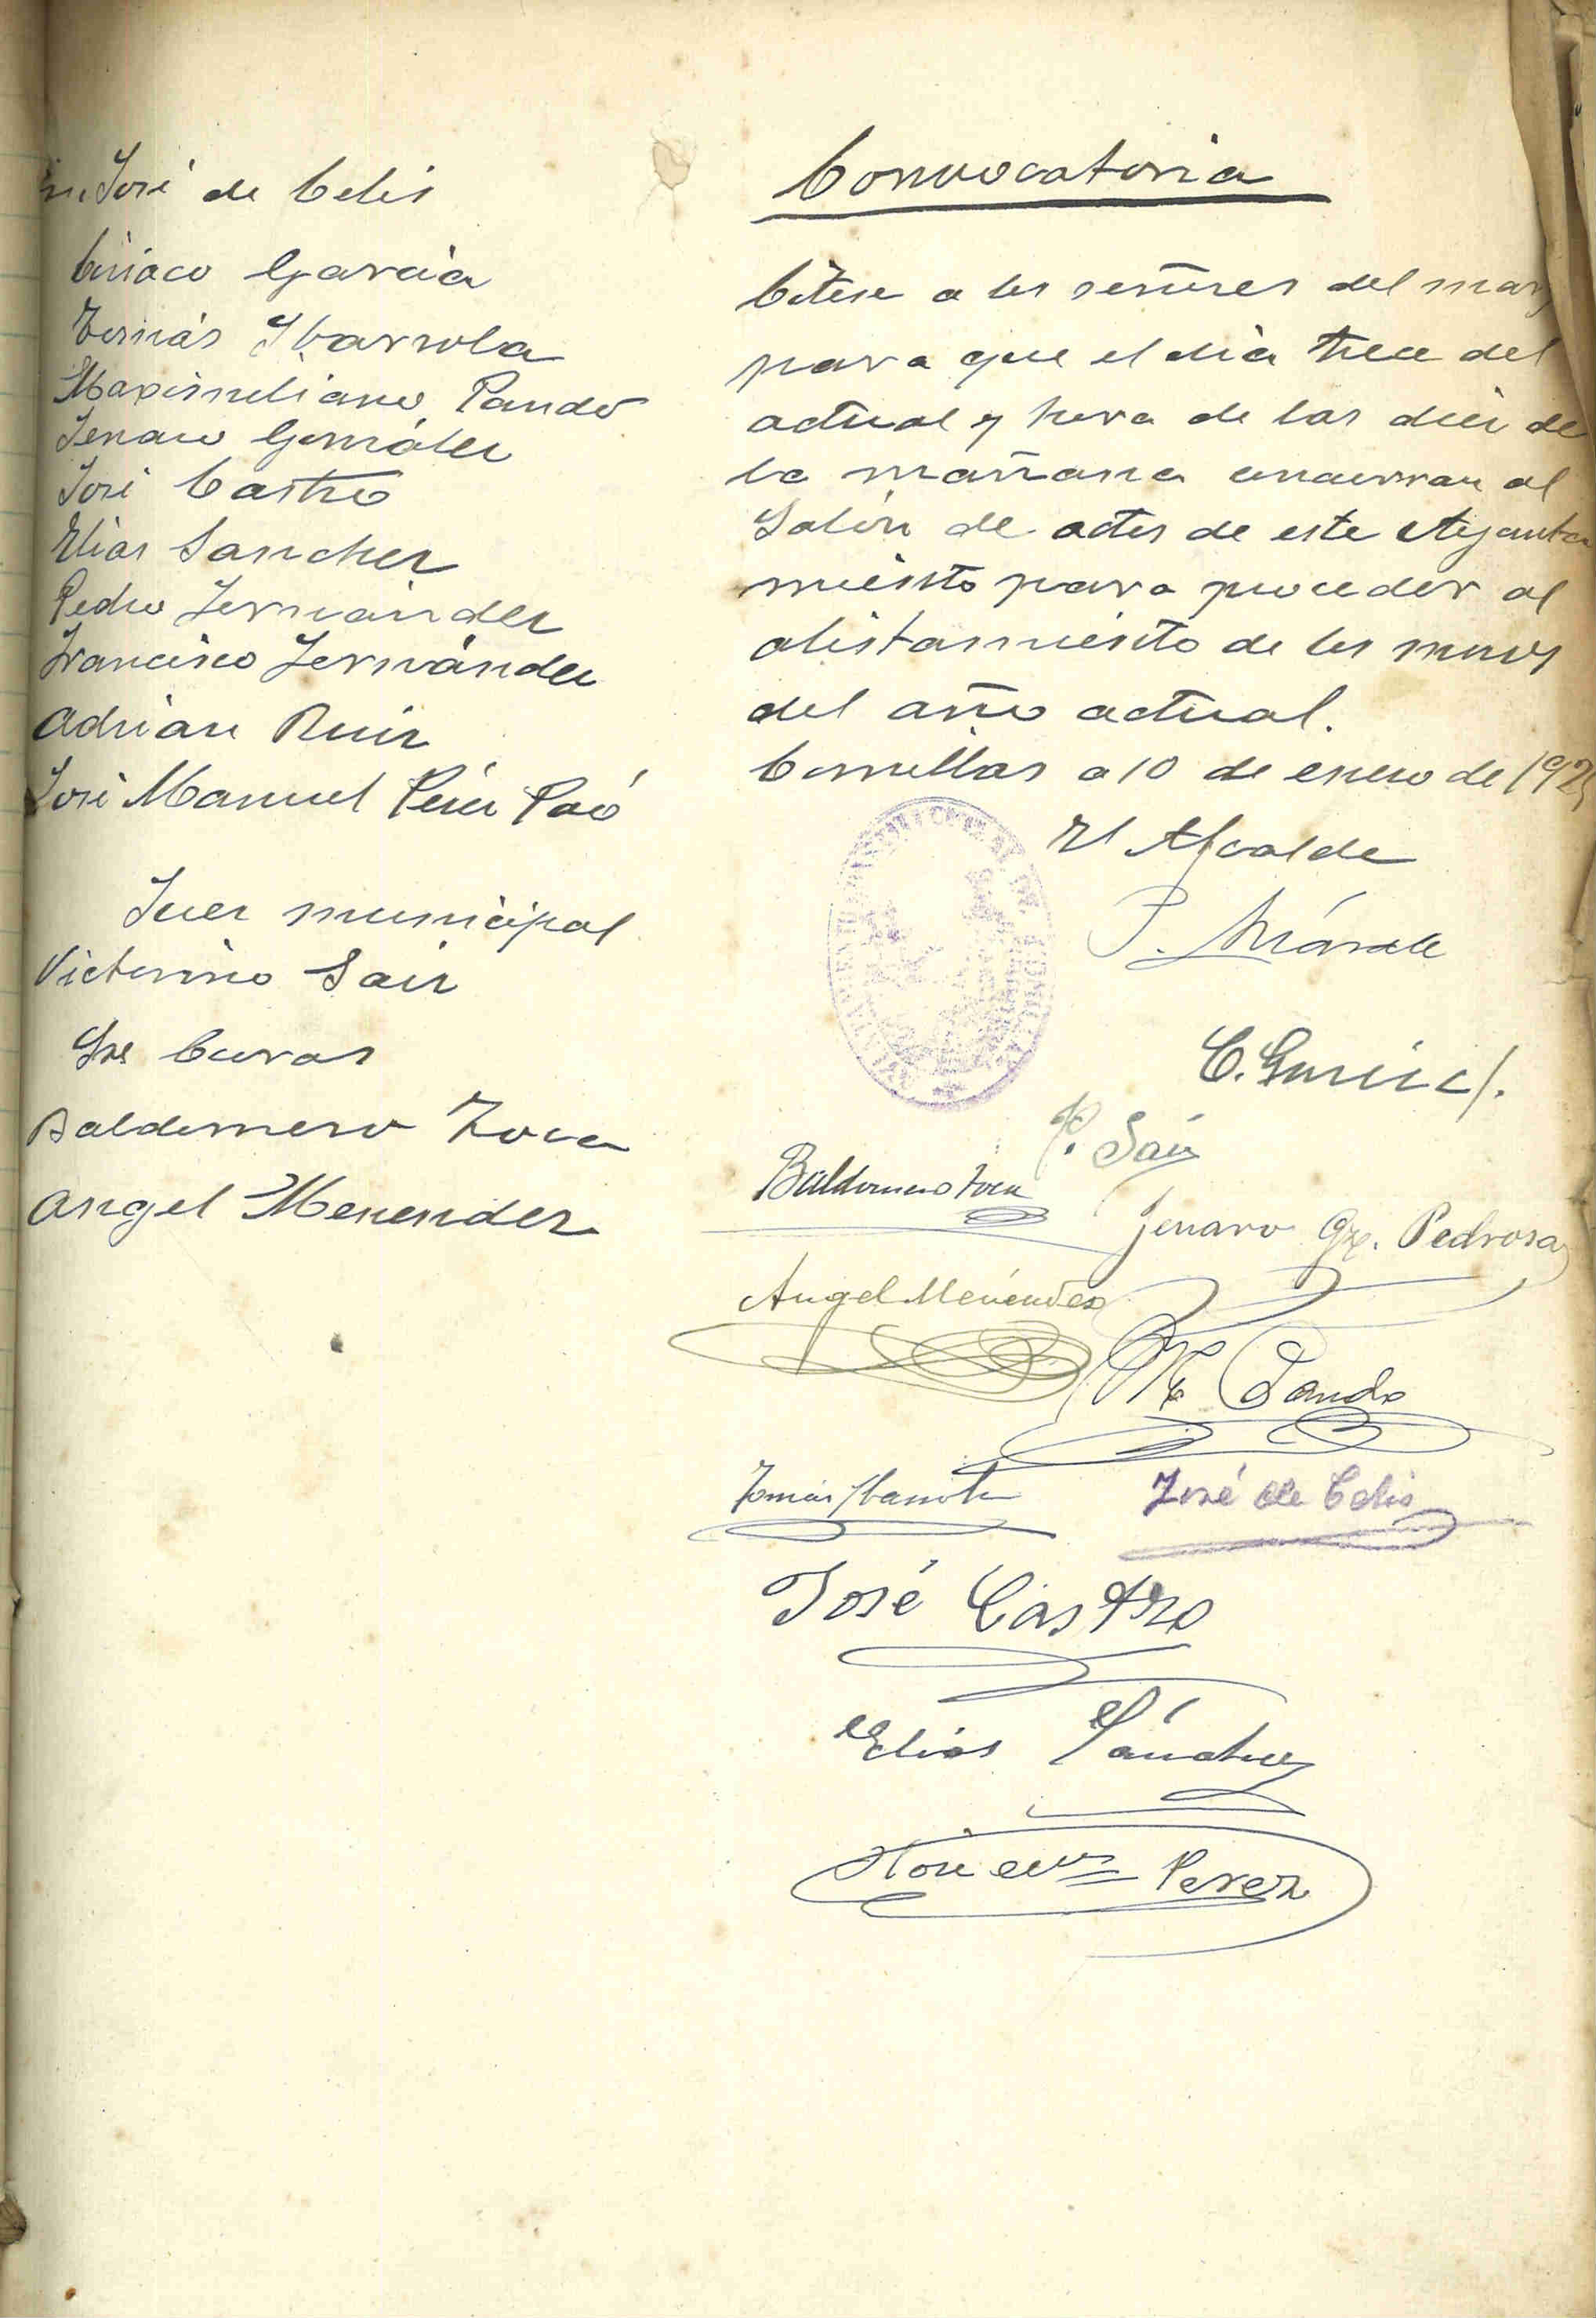 José de Celis
Ciriaco Garcia
Tomás Ibarrola
Maximiliano Pando
Jenaro González
José Castro
Elias Sanchez
Pedro Fernández
Francisco Fernández
Adrian Ruiz
José Manuel Pérez
Juez municipal
Victorino Saiz
Sres Curas
Baldomero Toca
Angel Menendez
Convocatoria
Cítese a los señores del marg
para que el dia trece del
actual y hora de las diez de
la mañana concurran al
Salón de actos de este Ayunta
miento para proceder al
alistamiento de los mozos
del año actual.
Comillas a 10 de enero de 192
El Alcalde
P.
C. Garcia
V. Saiz
Baldomero Toca
Jenaro Gz. Pedrosa
Angel Menéndez
M. Pando
Tomás Ibarrola
José de Celis
José Castro
Elias Sánchez
José Perez